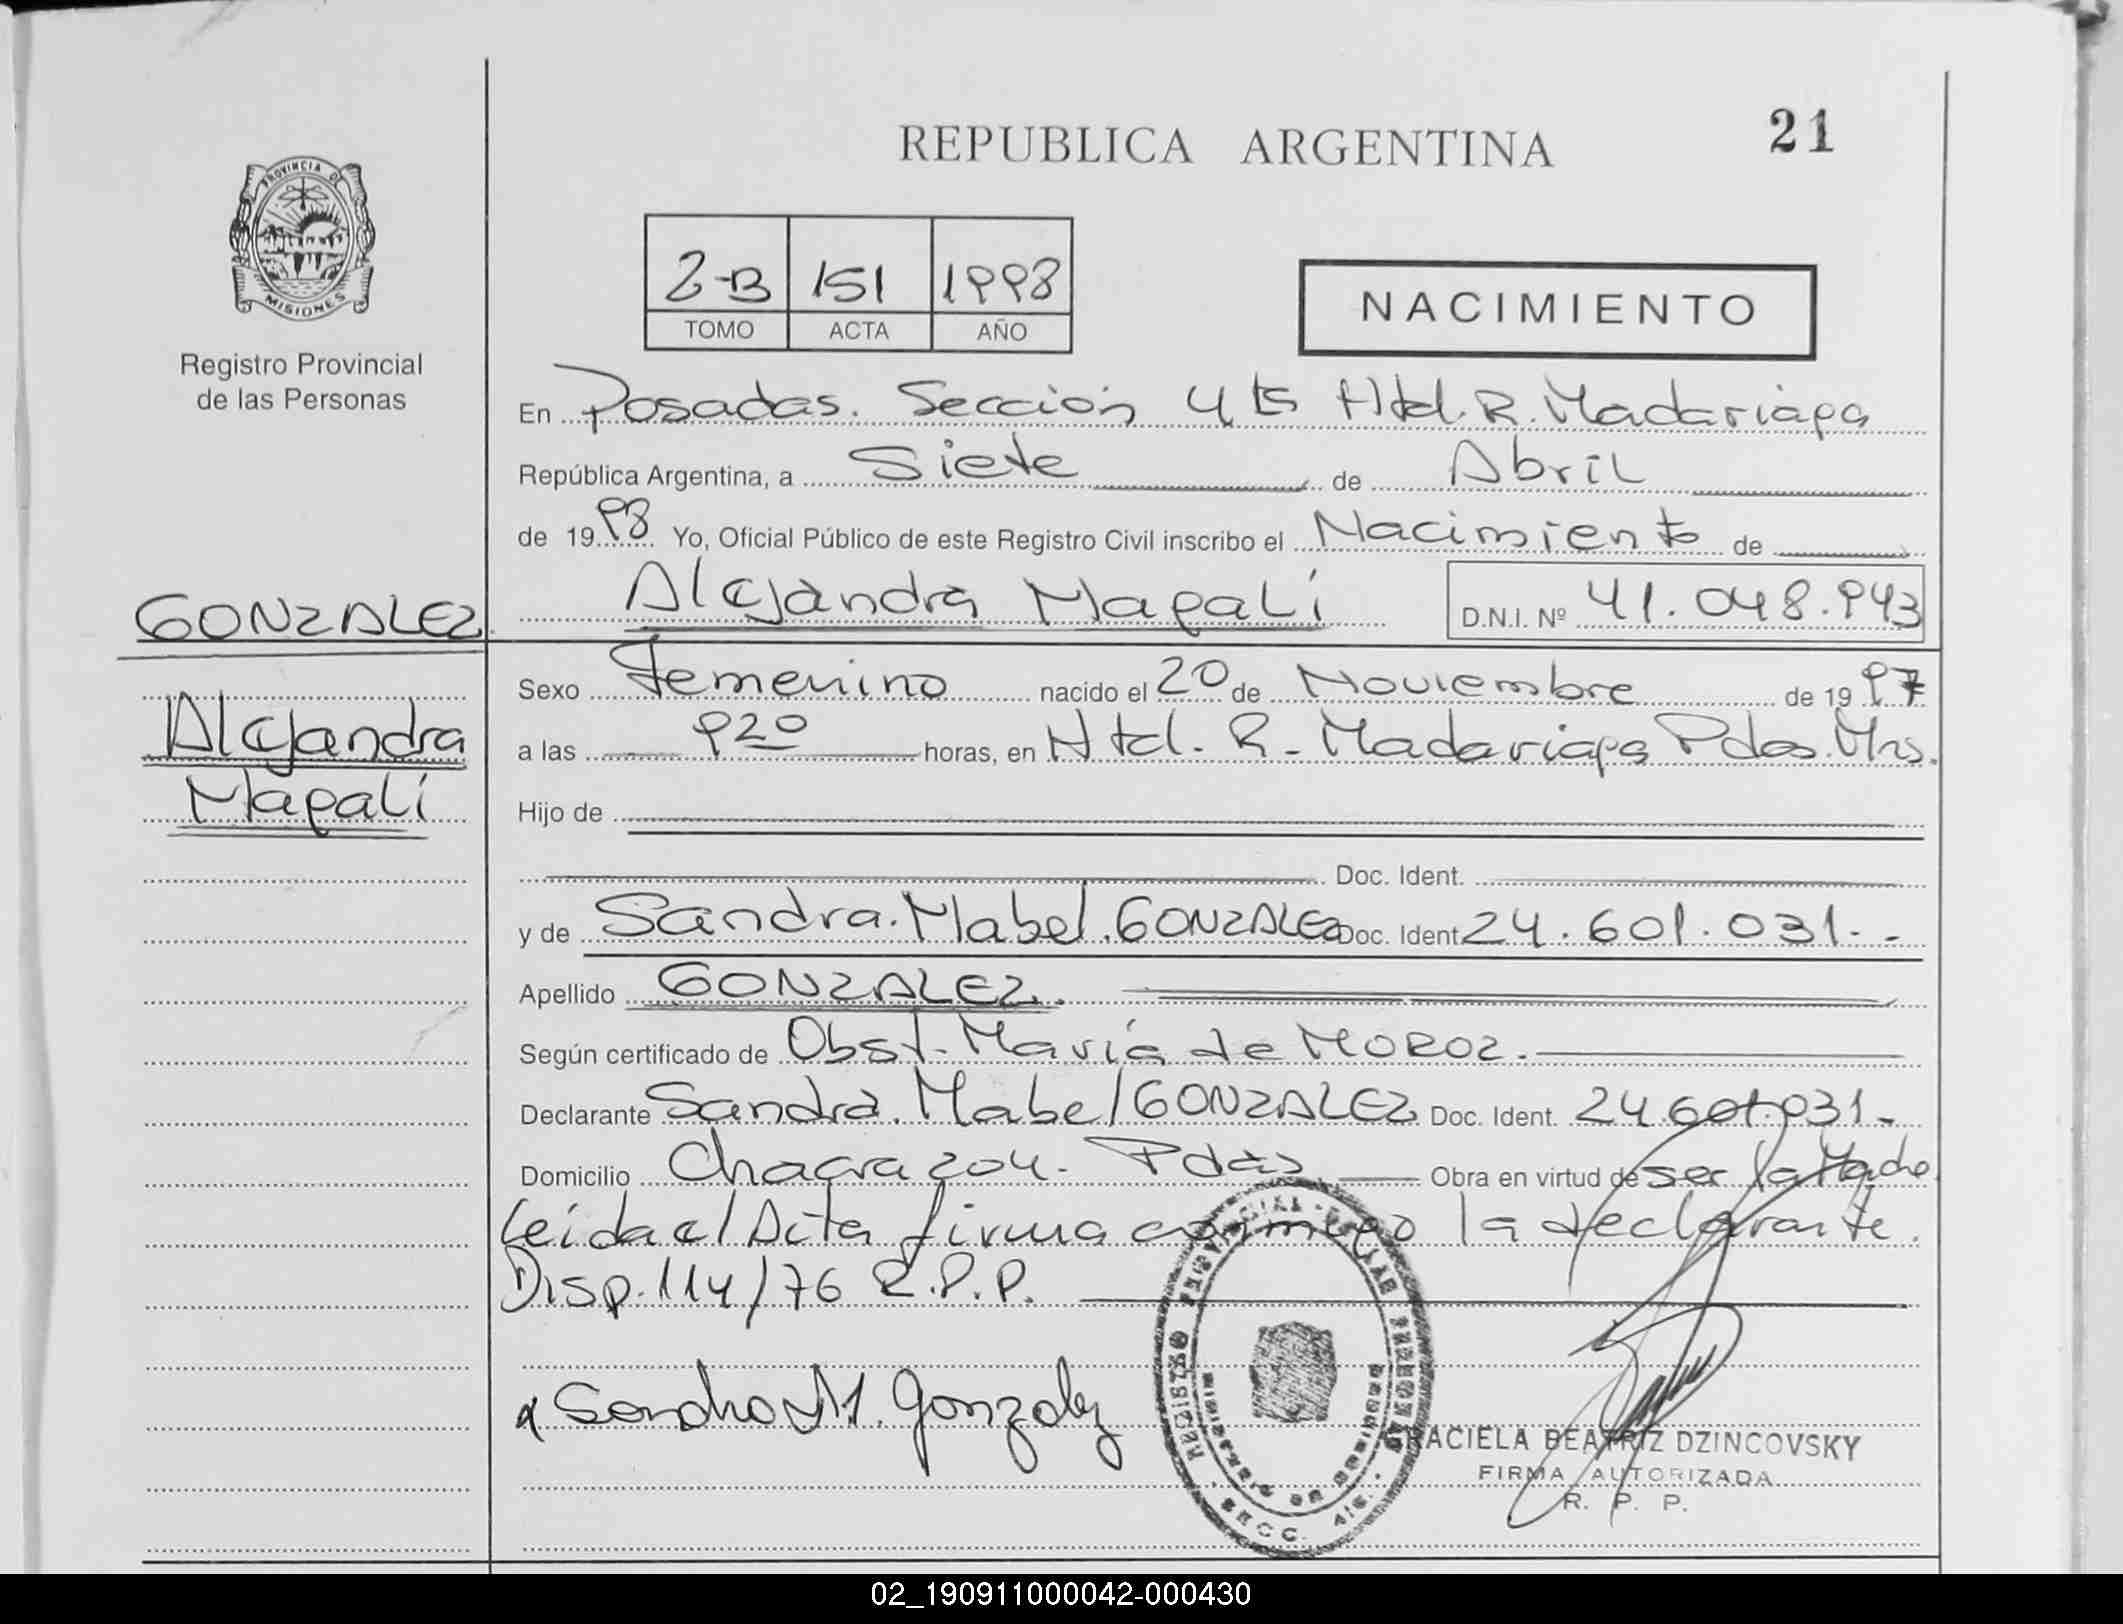 REPUBLICA ARGENTINA
21
PROVINCIA DE
MISIONES
Registro Provincial
de las Personas
2-B 151 1998
TOMO ACTA AÑO
NACIMIENTO
En Posadas. Sección 4ta Htal. R. Madariaga
República Argentina, a Siete de Abril
de 1998 Yo, Oficial Público de este Registro Civil inscribo el Nacimiento de
Alejandra Magalí D.N.I. Nº 41.048.943
GONZALEZ
Alejandra
Magalí
Sexo Femenino nacido el 20 de Noviembre de 1997
a las 920 horas, en Htal. R. Madariaga Pdas. Mns.
Hijo de
Doc. Ident.
y de Sandra Mabel GONZALEZ Doc. Ident. 24.601.031.-
Apellido GONZALEZ.
Según certificado de Obst. María de MOROZ.
Declarante Sandra Mabel GONZALEZ Doc. Ident. 24.601.031.-
Domicilio Chacra 204. Pdas Obra en virtud de ser la Madre
Leída el Acta firma conmigo la declarante.
Disp. 114/76 R.P.P.
Sandra M. Gonzalez
REGISTRO PROVINCIAL DE LAS PERSONAS
SECC. 4ta.
GRACIELA BEATRIZ DZINCOVSKY
FIRMA AUTORIZADA
R. P. P.
02_190911000042-000430